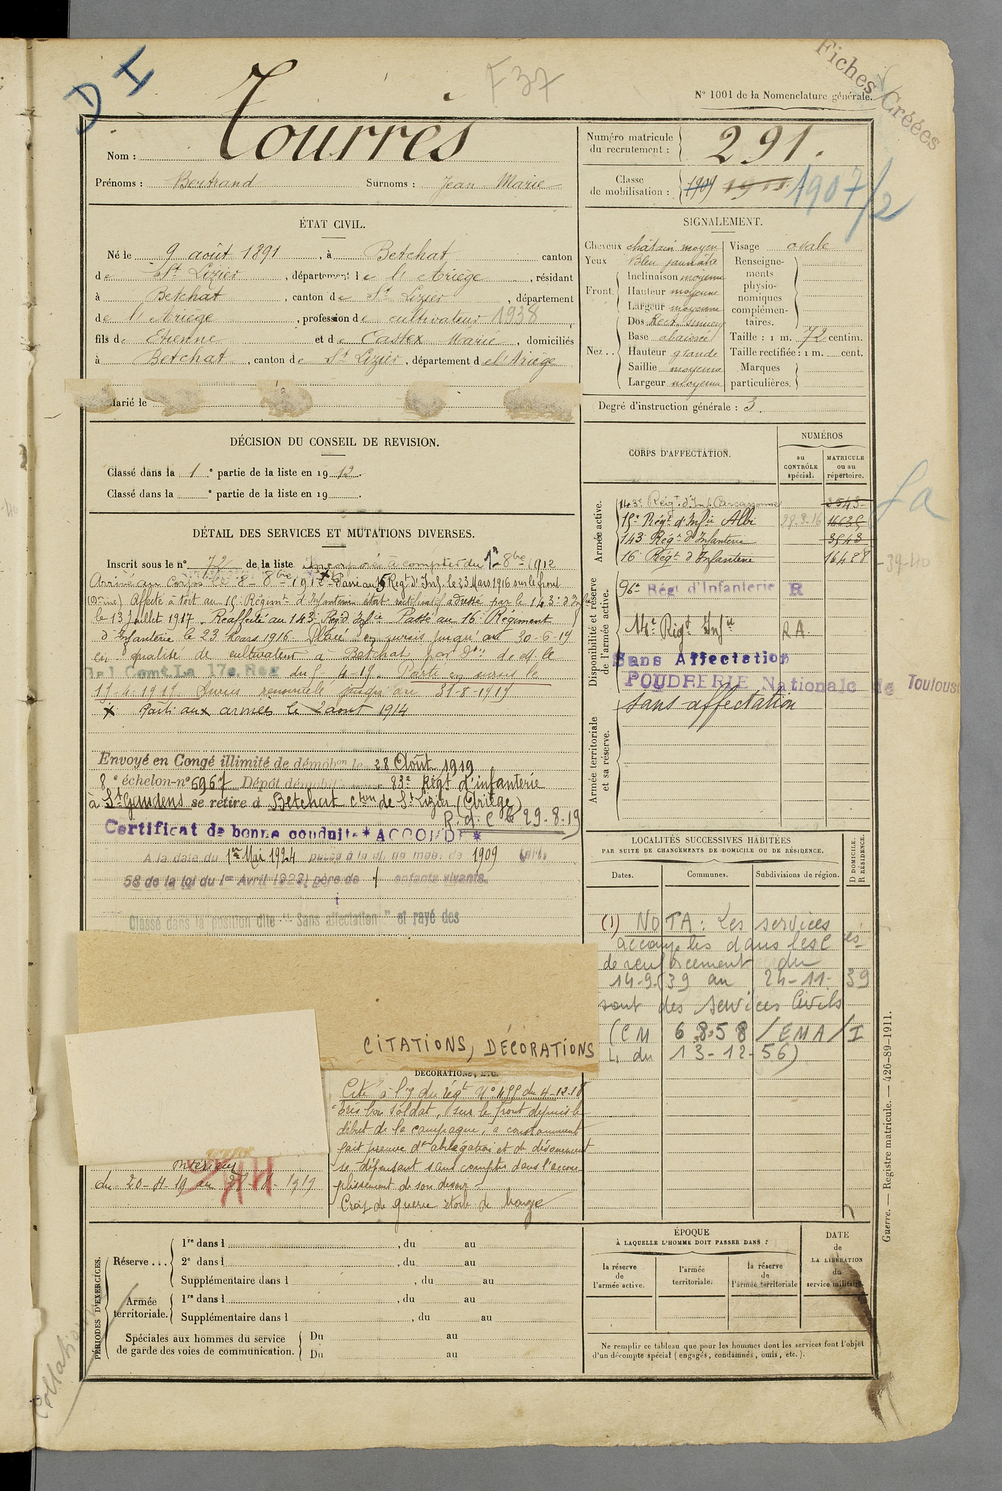 D I
F 37
Fiches Créées
N° 1001 de la Nomenclature générale.
Nom : Tourrès
Prénoms : Bertrand Surnoms : Jean Marie
Numéro matricule du recrutement : 291.
Classe de mobilisation : 1909 1911 1907/2
ÉTAT CIVIL.
Né le 9 août 1891, à Betchat canton
de St Lizier, département de l'Ariège, résidant
à Betchat, canton de St Lizier, département
de l'Ariège, profession de cultivateur 1938
fils de Etienne et de Castex Marie, domiciliés
à Betchat, canton de St Lizier, département de l'Ariège
Marié le
SIGNALEMENT.
Cheveux châtain moyen Visage ovale
Yeux Bleu jaunâtre
Renseignements physionomiques complémentaires.
Front. Inclinaison moyenne
Hauteur moyenne
Largeur moyenne
Nez.. Dos Rect.
Base abaissée Taille : 1 m. 72 centim.
Hauteur grande Taille rectifiée : 1 m. cent.
Saillie moyenne Marques
Largeur moyenne particulières.
Degré d'instruction générale : 3.
DÉCISION DU CONSEIL DE REVISION.
Classé dans la 1e partie de la liste en 1912.
Classé dans la e partie de la liste en 19 .
DÉTAIL DES SERVICES ET MUTATIONS DIVERSES.
Inscrit sous le n° 72 de la liste Incorporé à compter du 1er 8bre 1912
Arrivé au Corps le 8 8bre 1912 Passé au 15 Régt d'Inf. le 23 Mars 1916 sur le front
Affecté à tort au 15 Régimt d'Infanterie état rectificatif adressé par le 143e d'Inf
le 13 Juillet 1917. Réaffecté au 143 Regt d'Infie Passé au 16 Régiment
d'Infanterie le 23 Mars 1916. Placé en sursis jusqu'au 30-6-17
en qualité de cultivateur à Betchat par Don de M. le
Gal Comt La 17e Reg du 4-17. Parti en sursis le
17-4-1917. Sursis renouvelé jusqu'au 31-8-1917
x Parti aux armées le 2 aout 1914
Envoyé en Congé illimité de démobon le 28 Août 1919
8e échelon-n° 6967 Dépôt démobr 83e Régt d'infanterie
à St Gaudens se retire à Betchat cton de St Lizier (Ariège)
R. d. C le 29-8-19
Certificat de bonne conduite * ACCORDÉ *
A la date du 1er Mai 1924 passé à la cl. de mob. de 1909 (art.
58 de la loi du 1er Avril 1923) père de 1 enfants vivants.
Classé dans la position dite "Sans affectation" et rayé des
CORPS D'AFFECTATION.
NUMÉROS
au CONTRÔLE spécial.
MATRICULE ou au répertoire.
Armée active.
143e Régt d'Inf. Carcassonne 3543
15e Régt d'Infie Albi 23.3.16
143 Régt d'Infanterie 3543
16 Régt d'Infanterie 16468
Disponibilité et réserve de l'armée active.
96e Régt d'Infanterie R
14e Régt Infie R.A.
Sans Affectation
POUDRERIE Nationale de Toulouse
Armée territoriale et sa réserve.
Sans affectation
Sa
-39-40
LOCALITÉS SUCCESSIVES HABITÉES
PAR SUITE DE CHANGEMENTS DE DOMICILE OU DE RÉSIDENCE.
Dates. Communes. Subdivisions de région. D DOMICILE. R RÉSIDENCE.
(1) NOTA : Les services
accomplis dans les Cies
de renforcement du
14-9-39 au 24-11-39
sont des services Civils
(CM 6858/EMA/I
L du 13-12-56)
CITATIONS, DÉCORATIONS
DÉCORATIONS, ETC.
Cité à l'o du régt N° 499 du 4-12-18
très bon soldat, sur le front depuis le
début de la campagne, a constamment
fait preuve d'abnégation et de dévouement
se dépensant sans compter dans l'accom-
plissement de son devoir
Croix de guerre étoile de bronze
Intérieur
PÉRIODES D'EXERCICES.
Réserve ... 1re dans l , du au
2e dans l , du au
Supplémentaire dans l , du au
Armée territoriale. 1re dans l , du au
Supplémentaire dans l , du au
Spéciales aux hommes du service de garde des voies de communication. Du au
Du au
ÉPOQUE
À LAQUELLE L'HOMME DOIT PASSER DANS :
la réserve de l'armée active.
l'armée territoriale.
la réserve de l'armée territoriale
DATE de LA LIBÉRATION du service militaire.
Ne remplir ce tableau que pour les hommes dont les services font l'objet
d'un décompte spécial (engagés, condamnés, omis, etc.).
Guerre. — Registre matricule. — 426-89-1911.